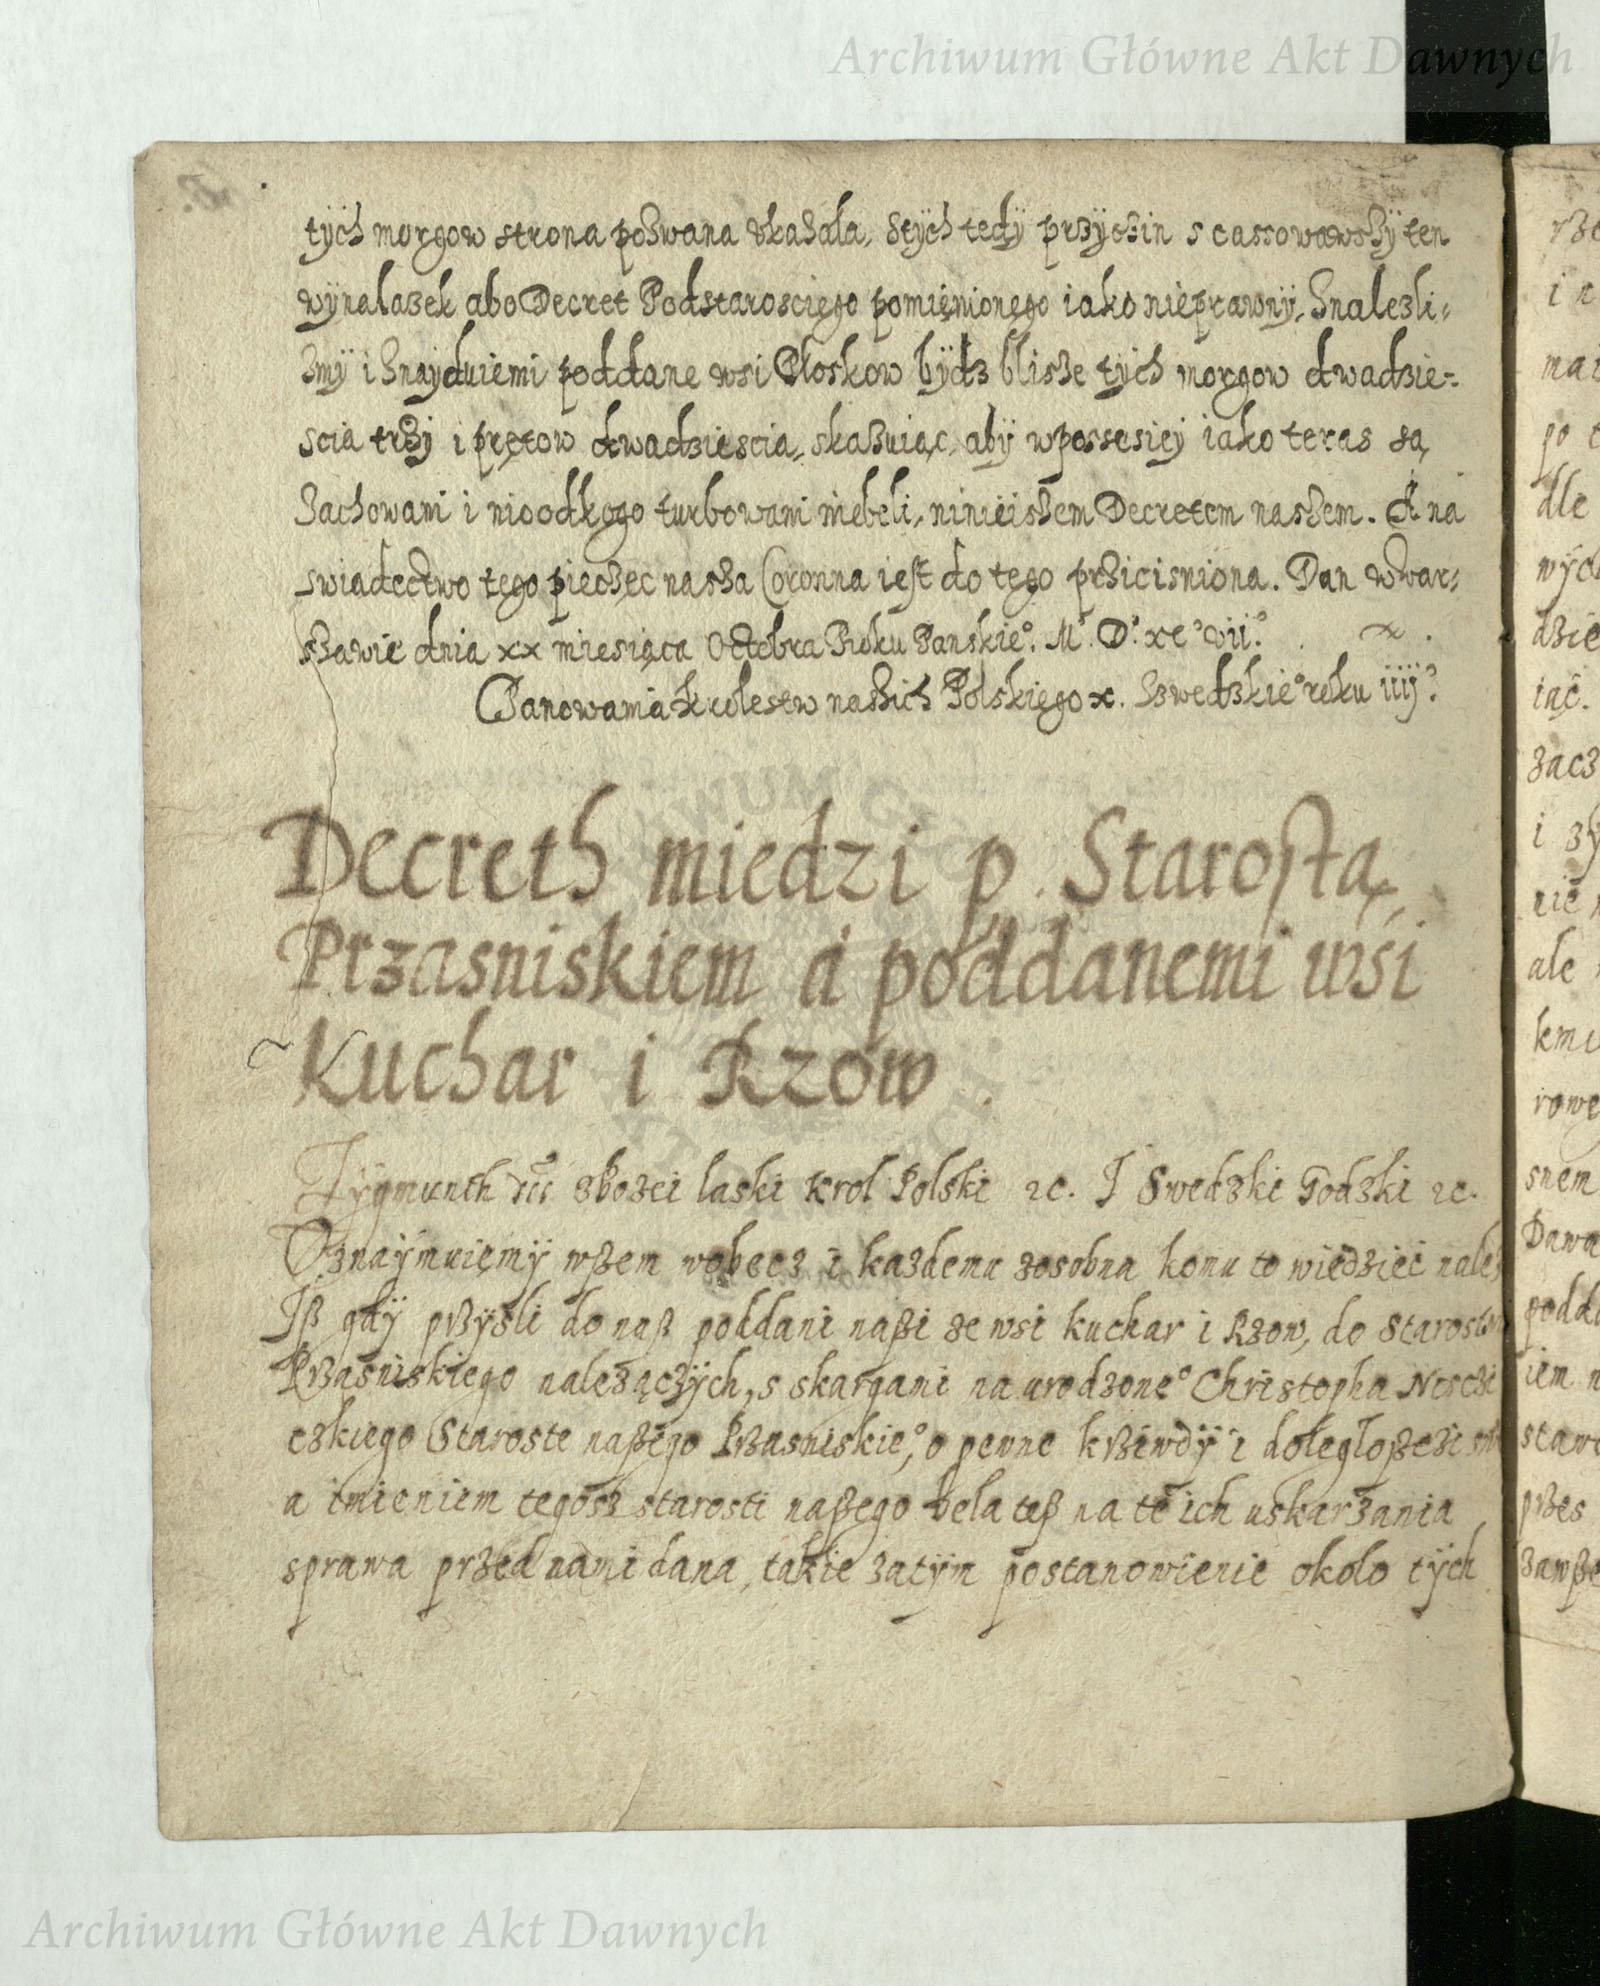 Archiwum Główne Akt Dawnych
tých morgow strona poзwana ukaзała, зtých tedý przýczin scassowawszý ten
wýnalazek abo Decret Podstarosciego pomięnionęgo iako nieprawný, Znalezli-
zmý i Znayduiemi poddane wsi Płoskow býdz blisze tých morgow dwadzie-
scia trzý i prętow dwadziescia, skazuiąc, abý wpossesiey iako teras są
Zachowani i niodkogo turbowani niebeli, ninieiszem Decretem naszem. A na
swiadectwo tęgo pieczęc nasza Coronna iest do tęgo prziciszniona. Dan wwar-
szawie dnia xx miesiąca Octobra Roku Panskie°. M° D° xc° vii°.
Panowania krolestw naszich Polskięgo x. Szwedzkie° roku iiij°
Decreth miedzi p. Starostą
Przasniskiem a poddanemi wśi
Kuchar i Rzow.
Zygmunth III zbozei laski Krol Polski 2c. I Swedzki Godzki 2c.
Oznaýmuięmý wßem wobecz i kazdemu zosobna komu to wiedziec należ
Iß gdý prßyśli do naß poddani naßi ze wsi kuchar i Rzow, do Starostw
Prßasniskiego nalezączých, s skargami na urodzone° Christopha
czkiego Staroste naßego Prßasniskie°, o pewne krßiwdý i dołegłoßczi
a imieniem tegosz starosti naßego bela teß na te ich uskarzania
sprawa przed nami dana, takie zatým postanowienie około tých
Archiwum Główne Akt Dawnych